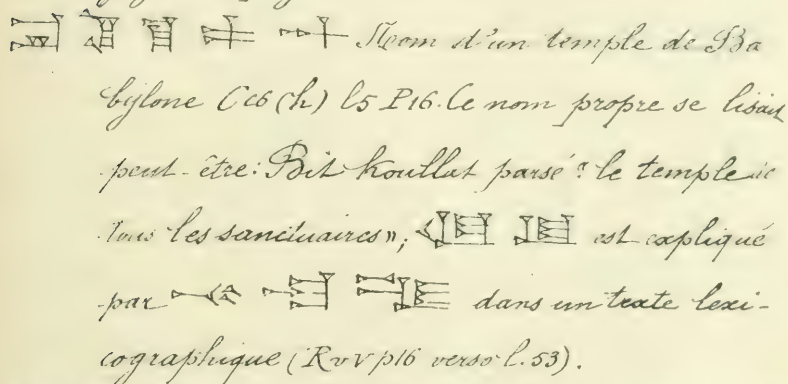 Nom d'un temple de Ba
bylone Cc6 (h) l5 P16. Ce nom propre se lisait
peut-être: Bit koullat parsé "le temple de
tous les sanctuaires"; est expliqué
par dans un texte lexi-
cographique (R v V p16 verso l.53).